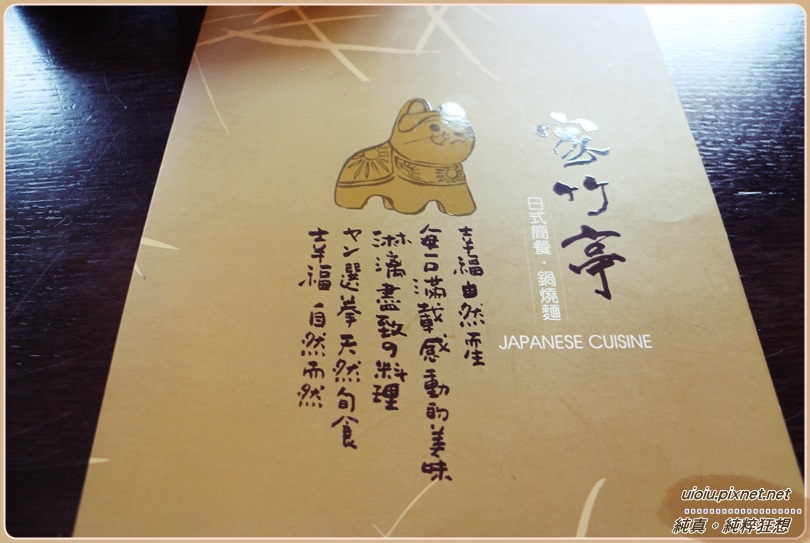 家竹亭
日式簡餐・鍋燒麵
JAPANESE CUISINE
幸福自然而生
每口滿載感動的美味
淋漓盡致の料理
ヤン選拳天然旬食
幸福 自然而然
uioiu.pixnet.net
純真。純粹狂想